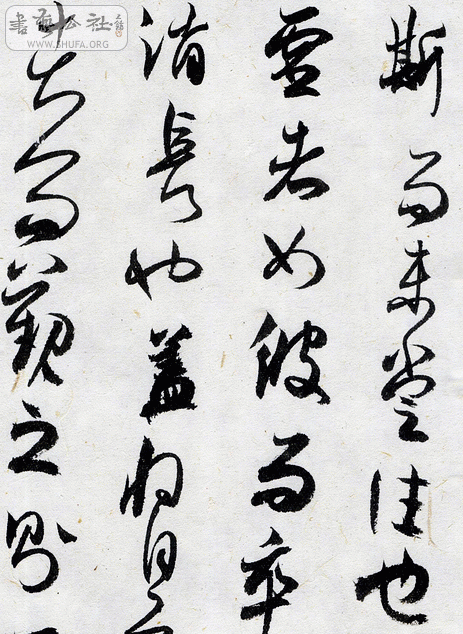 斯而未嘗往也
虛者如彼而卒
消長也蓋將自
者而觀之則
書法公社
WWW.SHUFA.ORG